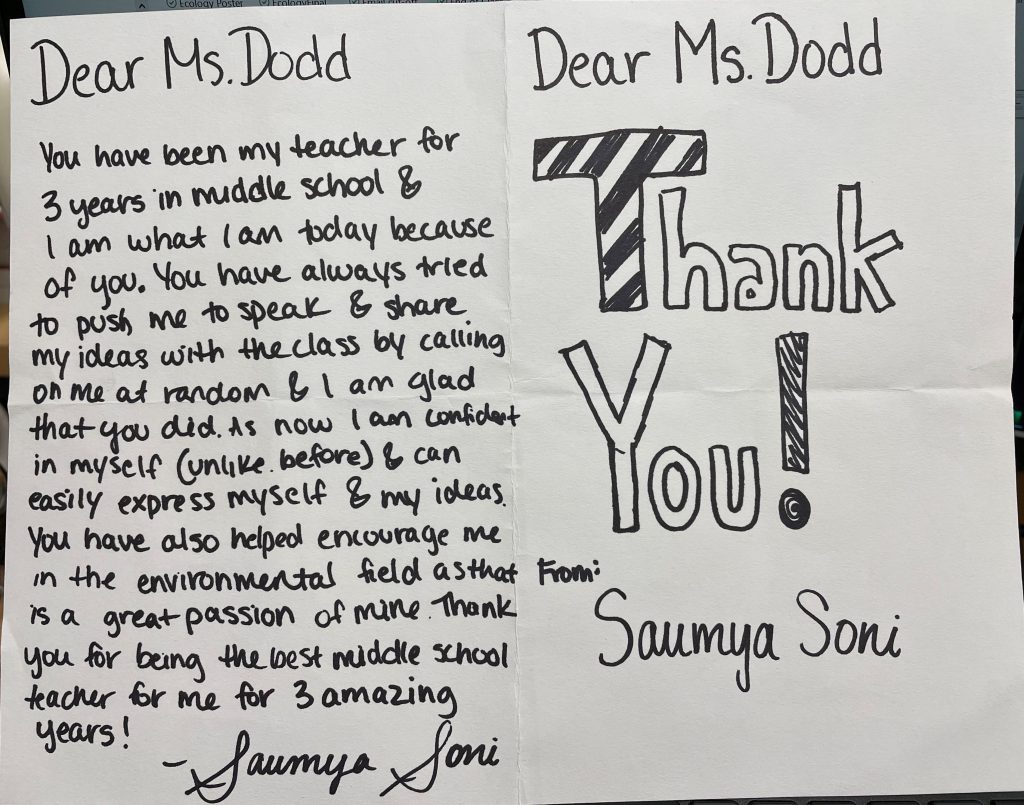 Ecology Poster
EcologyFinal
Dear Ms. Dodd
You have been my teacher for
3 years in middle school &
I am what I am today because
of you. You have always tried
to push me to speak & share
my ideas with the class by calling
on me at random & I am glad
that you did. As now I am confident
in myself (unlike before) & can
easily express myself & my ideas.
You have also helped encourage me
in the environmental field as that
is a great passion of mine. Thank
you for being the best middle school
teacher for me for 3 amazing
years!
- Saumya Soni
Dear Ms. Dodd
Thank
You!
From:
Saumya Soni